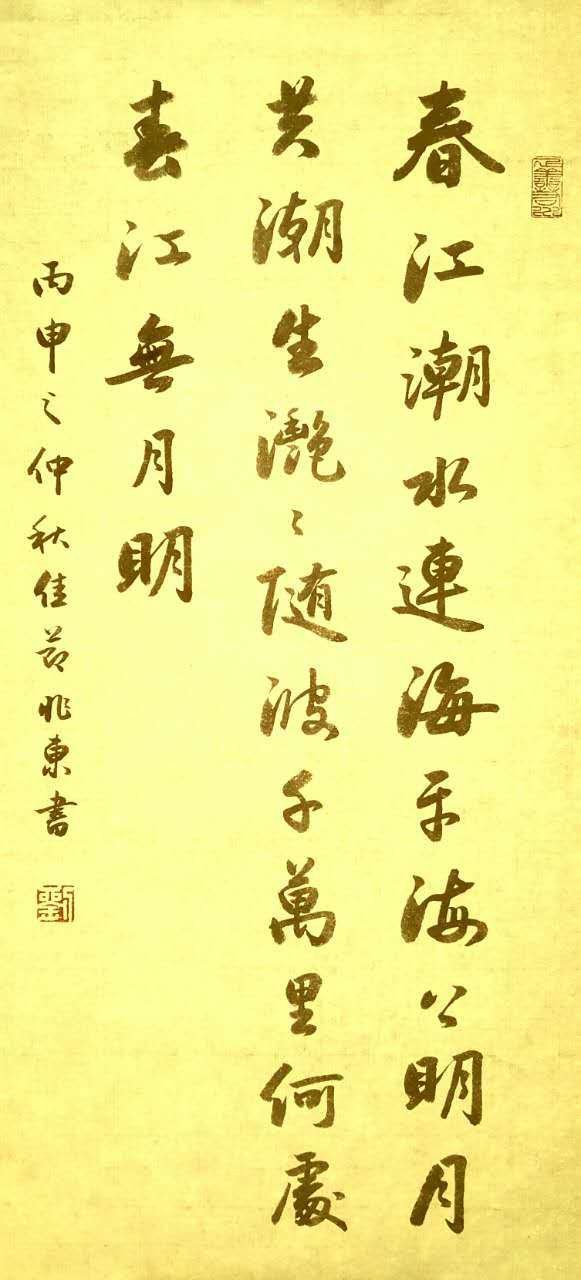 春江潮水連海平海上明月
共潮生灔〻随波千萬里何處
春江無月明
丙申之仲秋佳節兆東書
劉